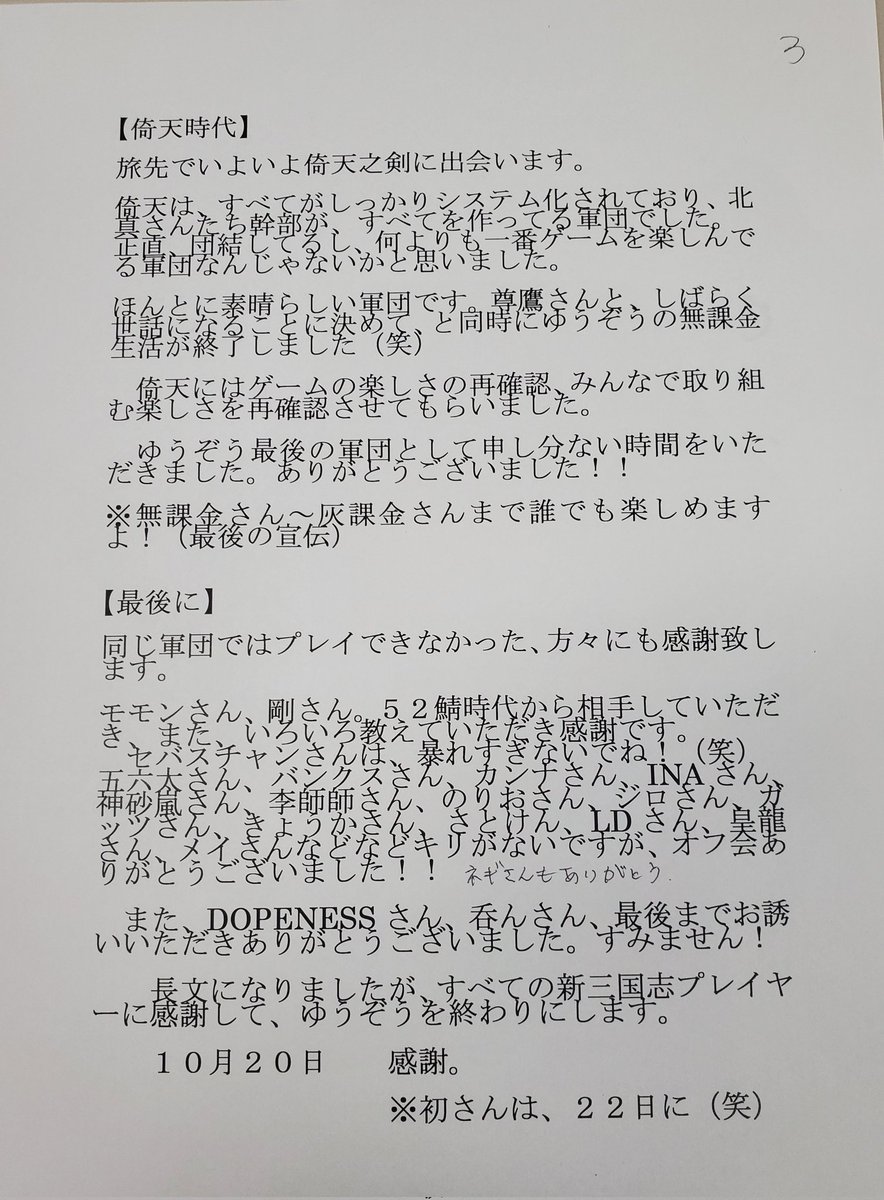 3
【倚天時代】
旅先でいよいよ倚天之剣に出会います。
倚天は、すべてがしっかりシステム化されており、北
真さんたち幹部が、すべてを作ってる軍団でした。
正直、団結してるし、何よりも一番ゲームを楽しんで
る軍団なんじゃないかと思いました。
ほんとに素晴らしい軍団です。尊鷹さんと、しばらく
世話になることに決めて、と同時にゆうぞうの無課金
生活が終了しました（笑）
倚天にはゲームの楽しさの再確認、みんなで取り組
む楽しさを再確認させてもらいました。
ゆうぞう最後の軍団として申し分ない時間をいた
だきました。ありがとうございました！！
※無課金さん～灰課金さんまで誰でも楽しめます
よ！（最後の宣伝）
【最後に】
同じ軍団ではプレイできなかった、方々にも感謝致し
ます。
モモンさん、剛さん。５２鯖時代から相手していただ
き、また、いろいろ教えていただき感謝です。
セバスチャンさんは、暴れすぎないでね！（笑）
五六太さん、バンクスさん、カンナさん、INAさん、
神砂嵐さん、李師師さん、のりおさん、ジロさん、ガ
ッツさん、きょうかさん、さとけん、LDさん、皇龍
さん、メイさんなどなどキリがないですが、オフ会あ
りがとうございました！！ ネギさんもありがとう．
また、DOPENESSさん、呑んさん、最後までお誘
いいただきありがとうございました。すみません！
長文になりましたが、すべての新三国志プレイヤ
ーに感謝して、ゆうぞうを終わりにします。
１０月２０日　　感謝。
※初さんは、２２日に（笑）